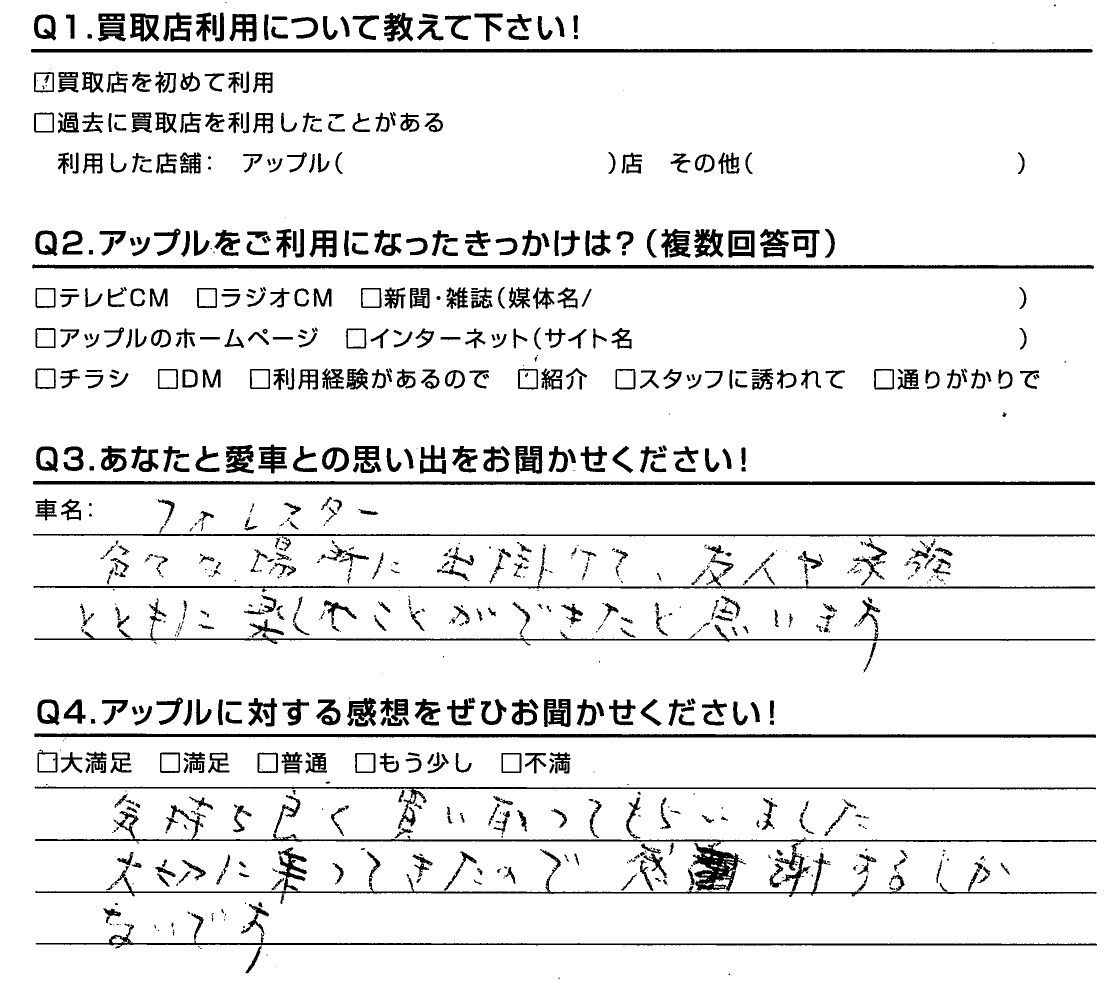 Q1.買取店利用について教えて下さい!
☑買取店を初めて利用
□過去に買取店を利用したことがある
利用した店舗: アップル( )店 その他( )
Q2.アップルをご利用になったきっかけは?(複数回答可)
□テレビCM □ラジオCM □新聞・雑誌(媒体名/ )
□アップルのホームページ □インターネット(サイト名 )
□チラシ □DM □利用経験があるので ☑紹介 □スタッフに誘われて □通りがかりで
Q3.あなたと愛車との思い出をお聞かせください!
車名: フォレスター
色々な場所に出掛けて、友人や家族
とともに楽しむことができたと思います
Q4.アップルに対する感想をぜひお聞かせください!
☑大満足 □満足 □普通 □もう少し □不満
気持ち良く買い取ってもらいました
大切に乗ってきたので感謝するしか
ないです